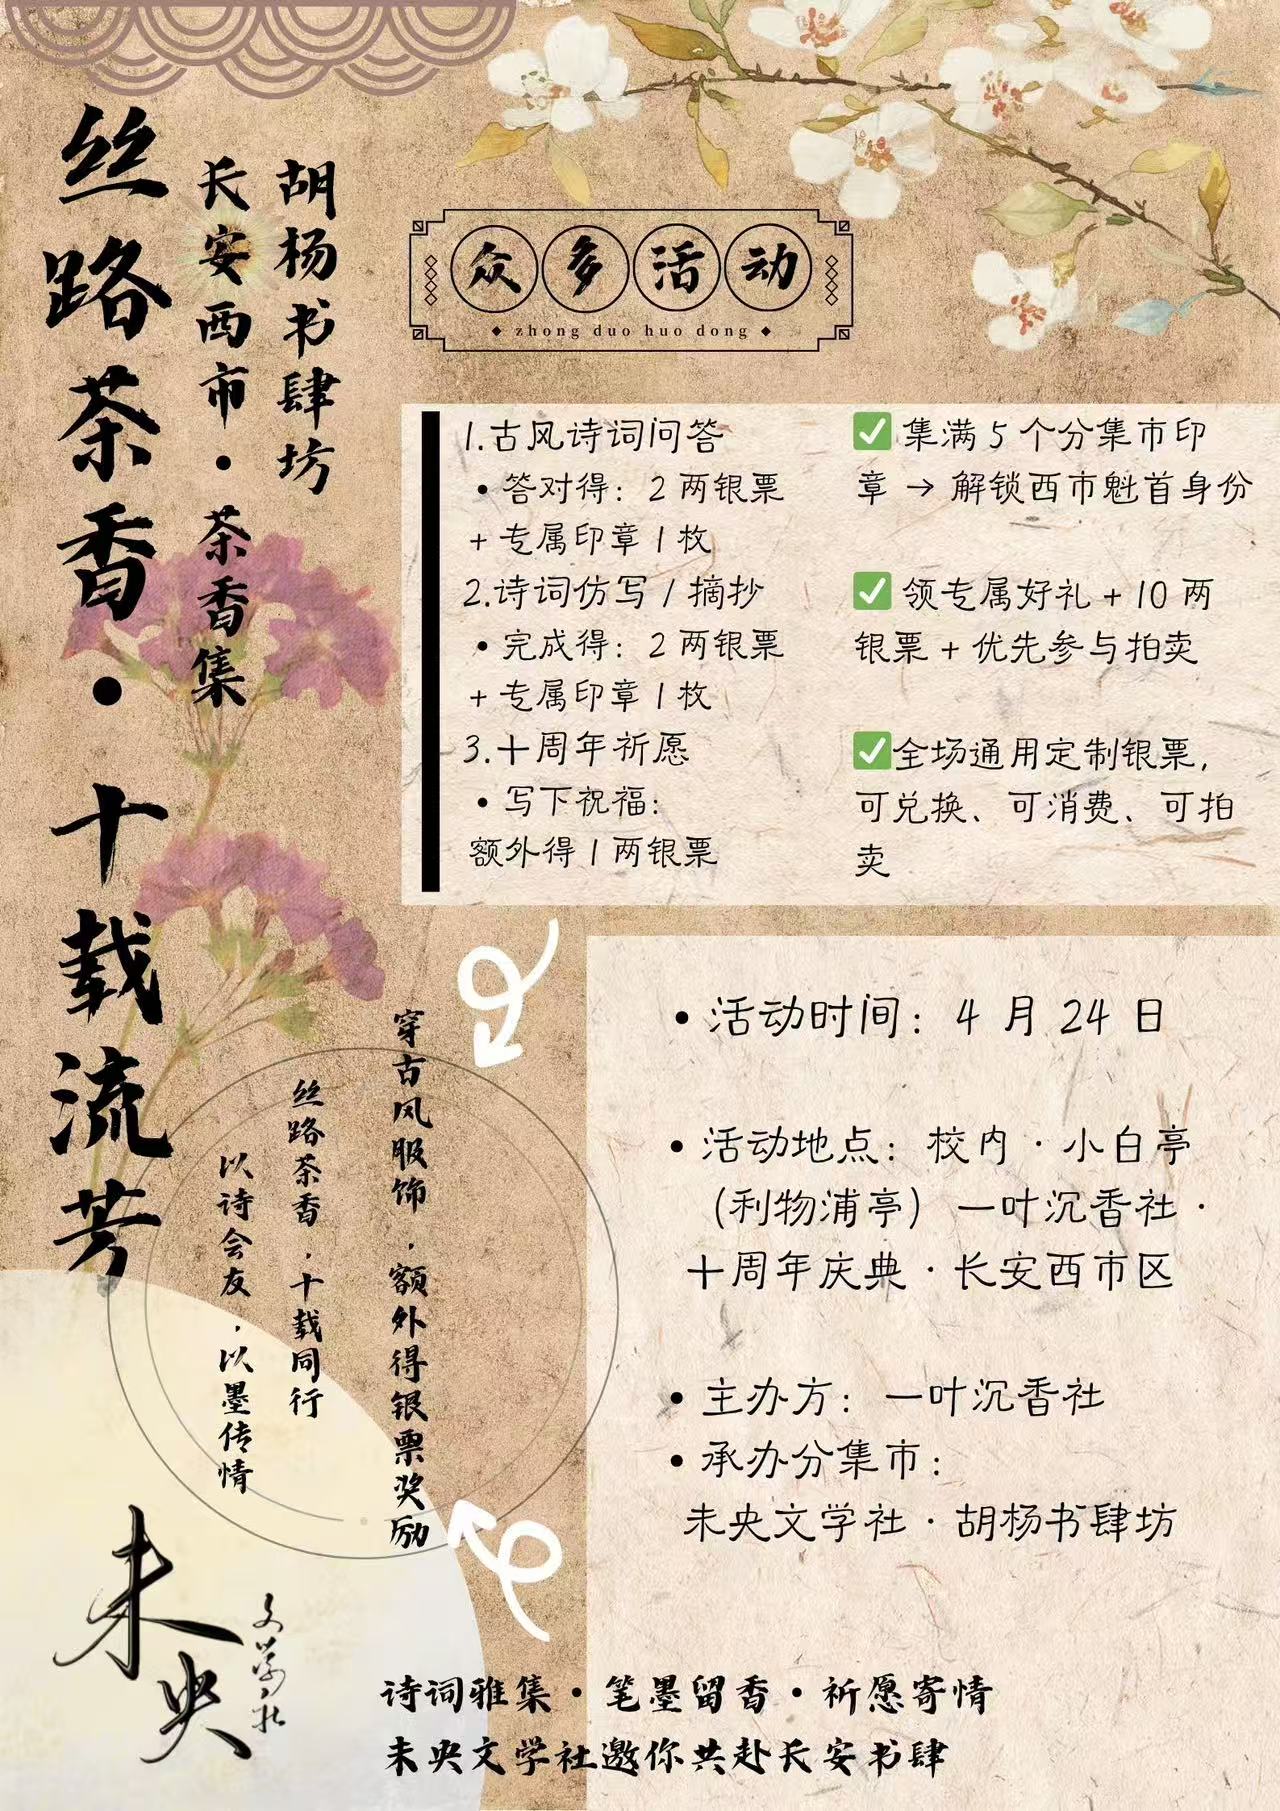 丝路茶香·十载流芳
胡杨书肆坊
长安西市·茶香集
众多活动
zhong duo huo dong
1.古风诗词问答
• 答对得：2 两银票
+ 专属印章 1 枚
2.诗词仿写 / 摘抄
• 完成得：2 两银票
+ 专属印章 1 枚
3.十周年祈愿
• 写下祝福：
额外得 1 两银票
✅ 集满 5 个分集市印
章 → 解锁西市魁首身份
✅ 领专属好礼 + 10 两
银票 + 优先参与拍卖
✅全场通用定制银票，
可兑换、可消费、可拍
卖
穿古风服饰，额外得银票奖励
丝路茶香，十载同行
以诗会友，以墨传情
• 活动时间：4 月 24 日
• 活动地点：校内 · 小白亭
（利物浦亭）一叶沉香社 ·
十周年庆典 · 长安西市区
• 主办方：一叶沉香社
• 承办分集市：
未央文学社 · 胡杨书肆坊
未央
文学社
诗词雅集·笔墨留香·祈愿寄情
未央文学社邀你共赴长安书肆